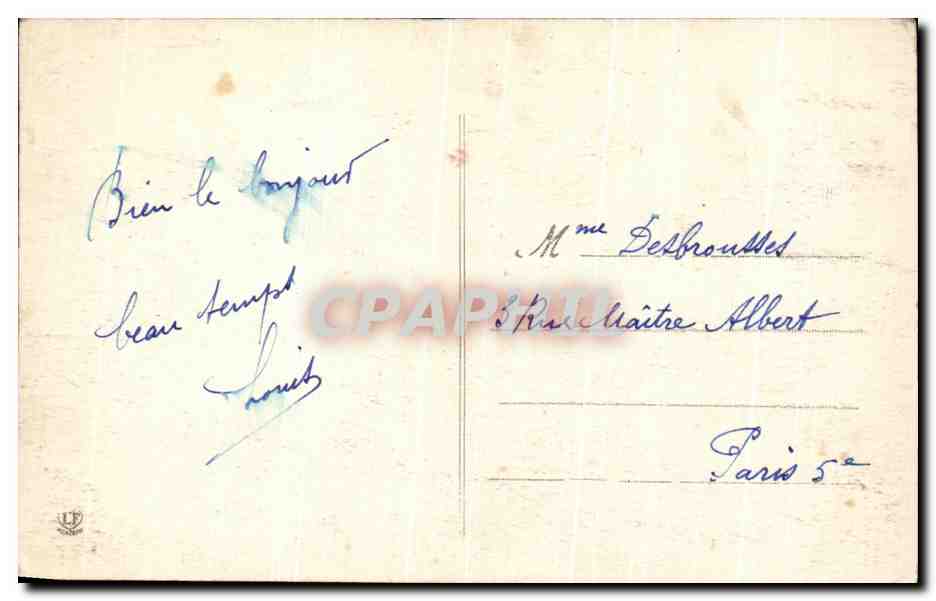 Bien le bonjour
beau temps
Louis
Mme Desbrousses
3 Rue Maître Albert
Paris 5e
CPAPHIL
LF